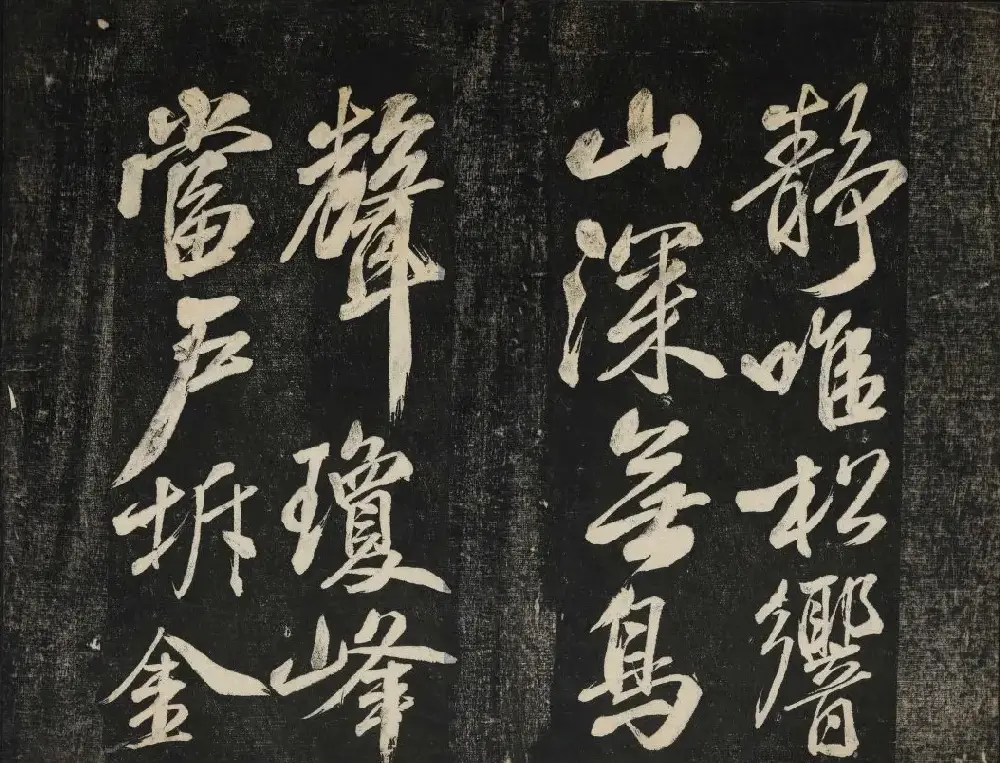 靜唯松響
山深無鳥
聲瓊峰
當戶拆金